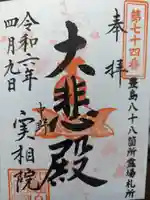 第七十四番
豊島八十八箇所霊場札所
奉拝
大悲殿
中野
実相院
四月九日